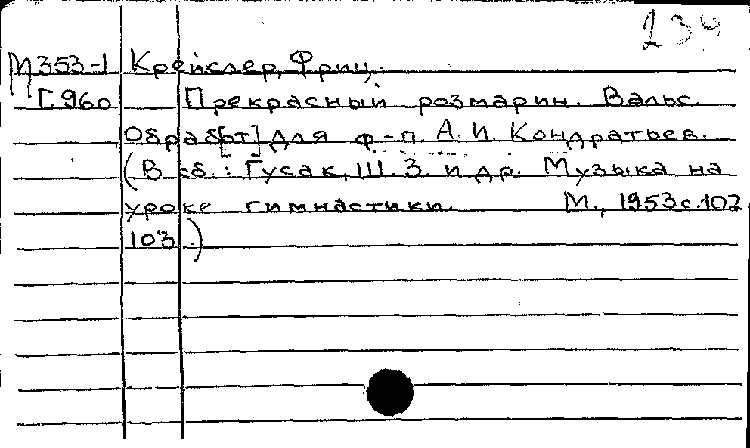 234
М353-1 Крейслер, Фриц.
Г960 Прекрасный розмарин. Вальс.
Обраб[от] для ф-п. А. И. Кондратьев.
(В сб.: Гусак, Ш. З. и др. Музыка на
уроке гимнастики. М., 1953 с. 102
103.)